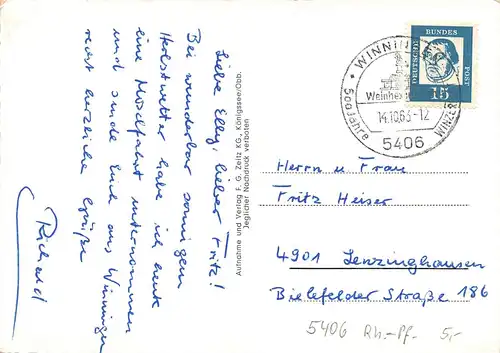 Liebe Elly, lieber Fritz!
Bei wunderbar sonnigem
Herbstwetter habe ich heute
eine Moselfahrt unternommen
und sende Euch aus Winningen
recht herzliche Grüße
Richard
Aufnahme und Verlag F. G. Zeitz KG., Königssee/Obb.
Jeglicher Nachdruck verboten
DEUTSCHE BUNDES POST
15
500 Jahre
14.10.63-12
5406
Herrn u. Frau
Fritz Heiser
4901 Lenzinghausen
Bielefelder Straße 186
5406 Rh.-Pf. 5,-